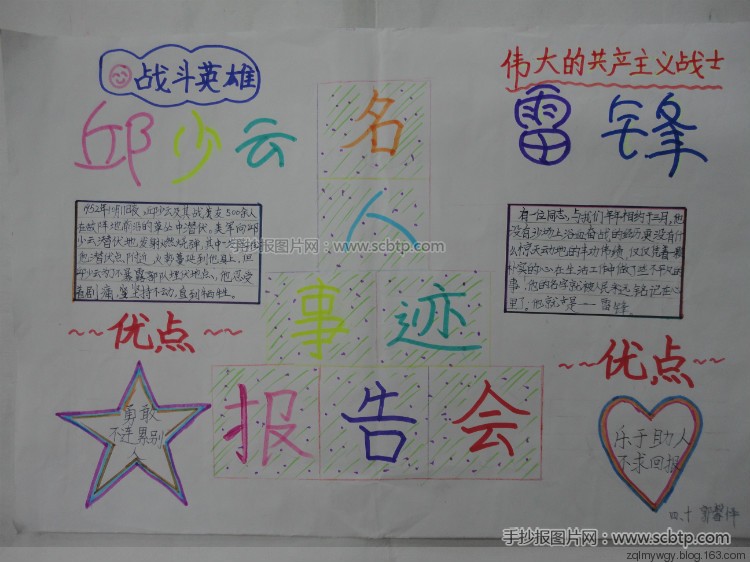 战斗英雄
邱少云
名
人
事迹
报告会
伟大的共产主义战士
雷锋
1952年10月11日夜,邱少云及其战友500余人
在敌阵地前沿的草丛中潜伏。美军向邱
少云潜伏地发射燃烧弹,其中
他潜伏点附近,火势蔓延到他身上,但
邱少云为不暴露部队埋伏地点,他忍受
着剧痛,坚持不动,直到牺牲。
有一位同志,与我们年年相约于三月,他
没有沙场上浴血奋战的经历更没有什
么惊天动地的丰功伟绩,仅仅凭着一颗
朴实的心在生活工作中做了些不平凡的
事,他的名字就被人民永远铭记在心
里了。他就是——雷锋。
~~优点~~
勇敢
不连累别
人
~~优点~~
乐于助人
不求回报
四、十
手抄报图片网:www.scbtp.com
手抄报图片网:www.scbtp.com
zqlmywgy.blog.163.com